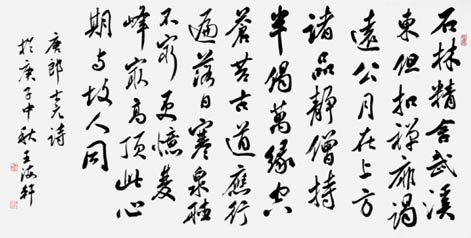 石林精舍武溪
東夜扣禪扉謁
遠公月在上方
諸品靜僧持
半偈萬緣空
蒼苔古道應行
遍落日寒泉聽
不窮更憶雙
峰最高頂此心
期与故人同
唐郎士元诗
於庚子中秋王海軒